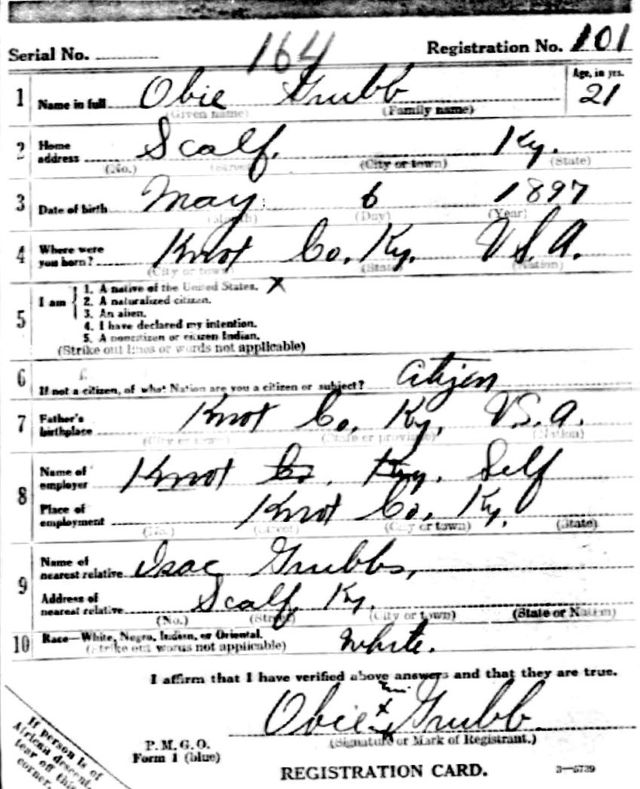 Serial No. 164 Registration No. 101
1 Name in full Obie Grubb Age, in yrs. 21
(Given name) (Family name)
2 Home address Scalf. Ky.
(No.) (Street) (City or town) (State)
3 Date of birth May 6 1897
(Month) (Day) (Year)
4 Where were you born? Knot Co. Ky. U.S.A.
(City or town) (State) (Nation)
5 I am
1. A native of the United States. X
2. A naturalized citizen.
3. An alien.
4. I have declared my intention.
5. A noncitizen or citizen Indian.
(Strike out lines or words not applicable)
6 If not a citizen, of what Nation are you a citizen or subject? Citizen
7 Father's birthplace Knot Co. Ky. U.S.A.
(City or town) (State or province) (Nation)
8 Name of employer Knot Co. Ky. Self
Place of employment Knot Co. Ky.
(No.) (Street) (City or town) (State)
9 Name of nearest relative Isac Grubbs,
Address of nearest relative Scalf, Ky.
(No.) (Street) (City or town) (State or Nation)
10 Race—White, Negro, Indian, or Oriental. White.
(Strike out words not applicable)
I affirm that I have verified above answers and that they are true.
Obie x Grubb
(Signature or Mark of Registrant.)
P. M. G. O.
Form 1 (blue)
REGISTRATION CARD. 3—5739
If person is of
African descent,
tear off this
corner.